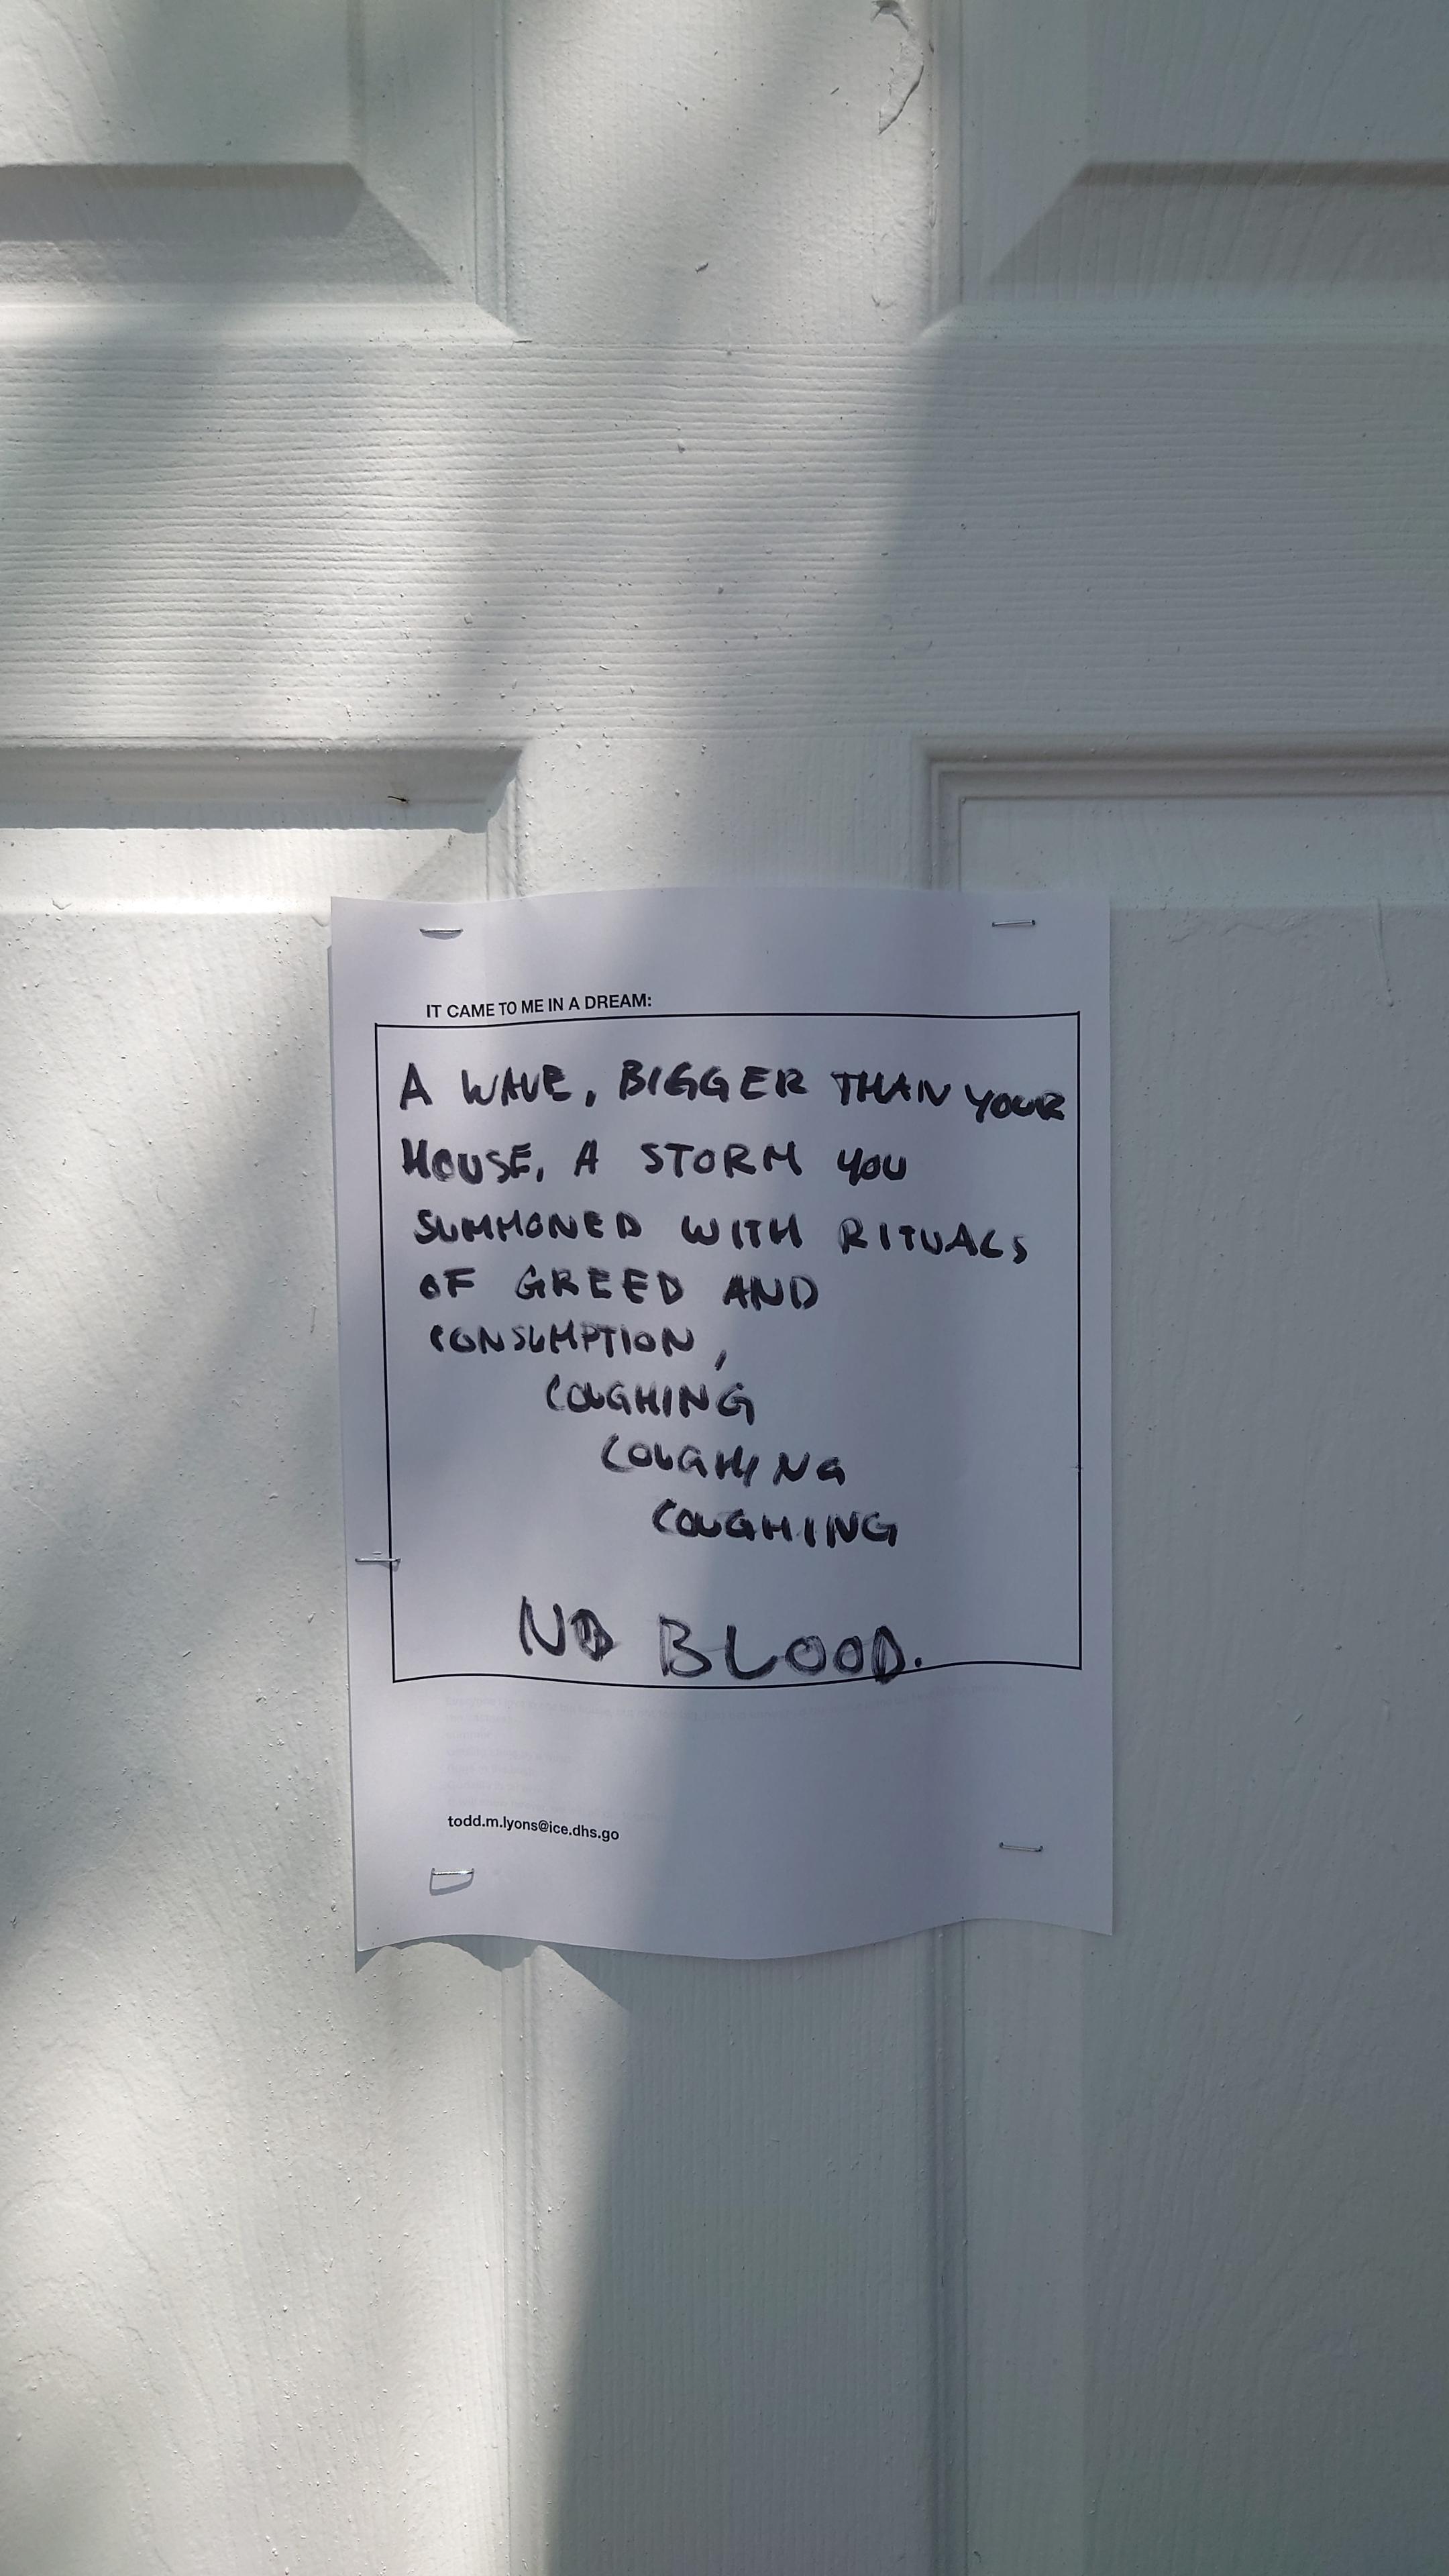 IT CAME TO ME IN A DREAM:
A WAVE, BIGGER THAN YOUR
HOUSE, A STORM YOU
SUMMONED WITH RITUALS
OF GREED AND
CONSUMPTION,
COUGHING
COUGHING
COUGHING
NO BLOOD.
todd.m.lyons@ice.dhs.go